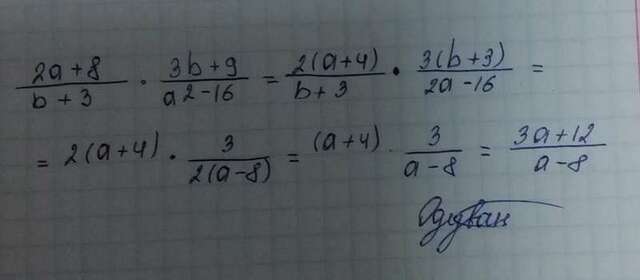 (2a+8)/(b+3) · (3b+9)/(a2-16) = 2(a+4)/(b+3) · 3(b+3)/(2a-16) =
= 2(a+4) · 3/(2(a-8)) = (a+4) · 3/(a-8) = (3a+12)/(a-8)